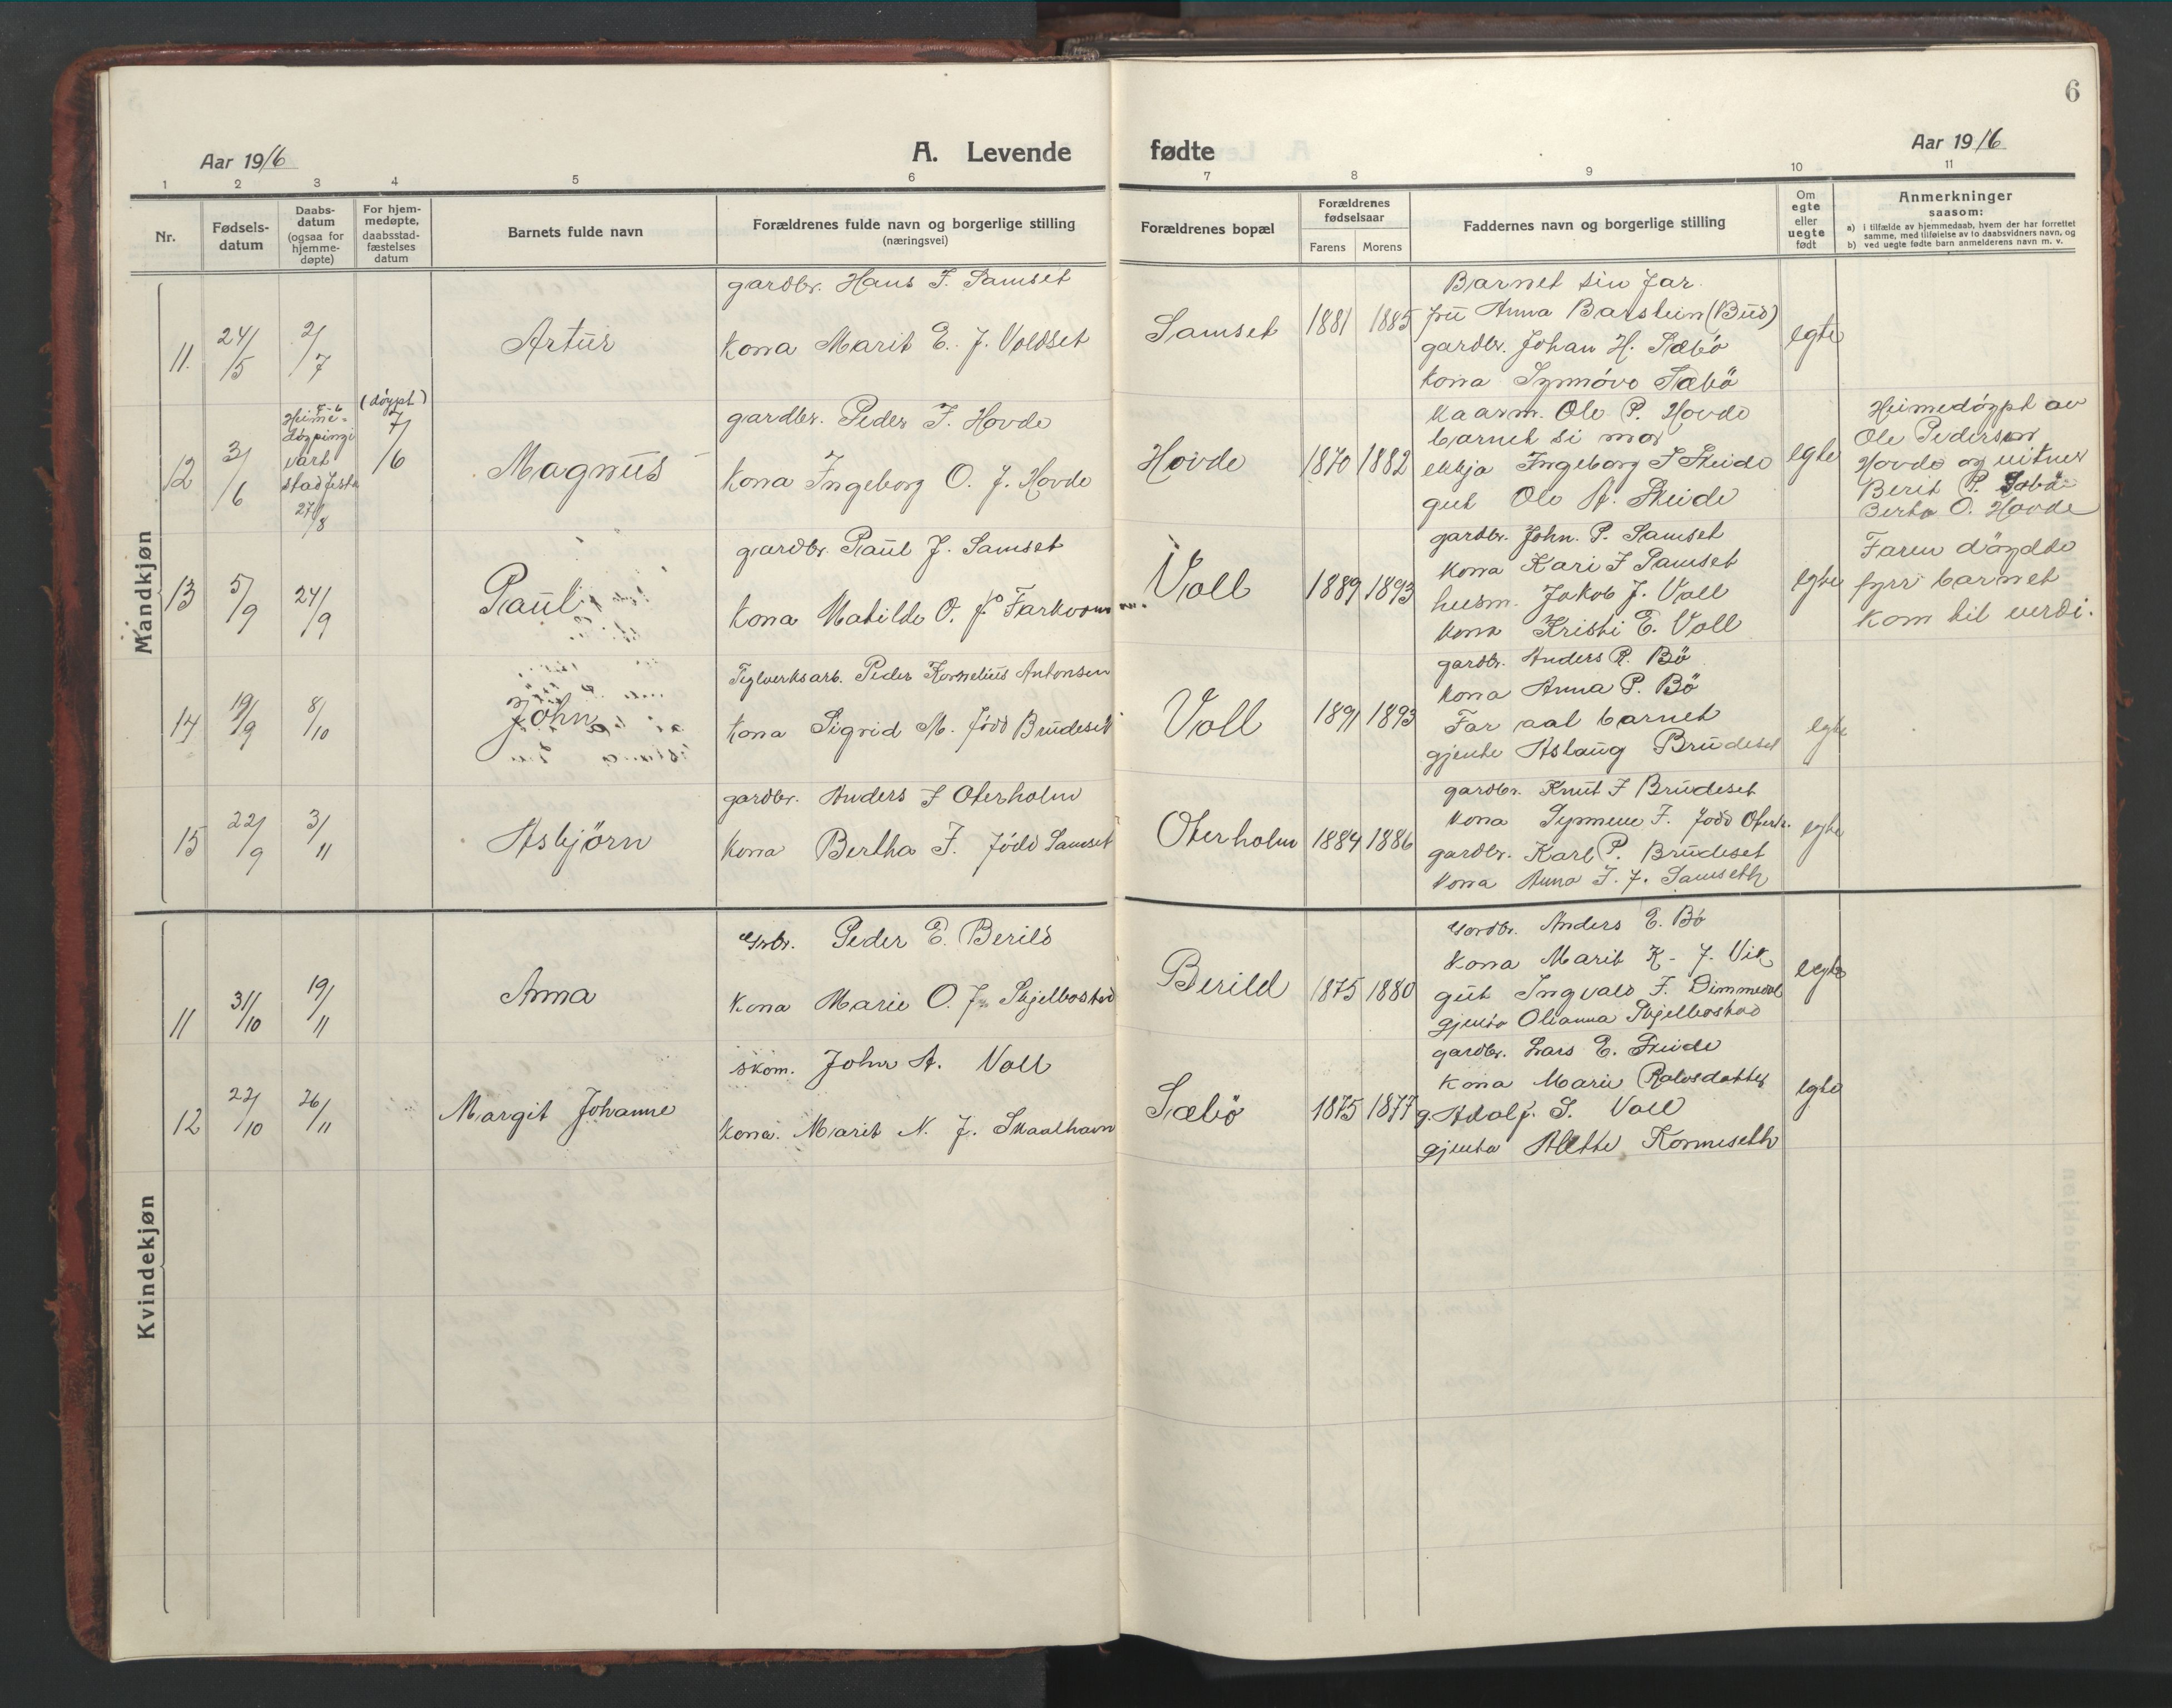 6
Aar 1916
A. Levende fødte
Aar 1916
1 2 3 4 5 6 7 8 9 10 11
Nr.
Fødsels-
datum
Daabs-
datum
(ogsaa for
hjemme-
døpte)
For hjem-
medøpte,
daabsstad-
fæstelses
datum
Barnets fulde navn
Forældrenes fulde navn og borgerlige stilling
(næringsvei)
Forældrenes bopæl
Forældrenes
fødselsaar
Farens
Morens
Faddernes navn og borgerlige stilling
Om
egte
eller
uegte
født
Anmerkninger
saasom:
a) i tilfælde av hjemmedaab, hvem der har forrettet
samme, med tilføielse av to daabsvidners navn, og
b) ved uegte fødte barn anmelderens navn m. v.
Mandkjøn
11.
24/5
2/7
Artur
gardbr. Hans J. Samset
Kona Marit E. f. Voldset
Samset
1881
1885
Barnet sin far
fru Anna Barstein (Bud)
gardbr. Johan H. Sæbö
Kona Synnóve Sæbö
egte
12
3/6
5-6
Heime-
døypingi
vart
stadfest
27/8
(döypt)
7/6
Magnus
gardbr. Peder J. Hovde
Kona Ingeborg O. f. Hovde
Hovde
1870
1882
Kaarm. Ole P. Hovde
barnet si mor
ekkja Ingeborg J Steide
gut Ole A. Steide
egte
Heimedöypt av
Ole Pederson
Hovde og vitner
Berit P. Sæbö
Berta O. Hovde
13
5/9
24/9
Paul
gardbr. Paul J. Samset
Kona Matilde O. f. Farkvam
Voll
1889
1893
gardbr. John. P. Samset
Kona Kari J Samset
husm. Jakob J. Voll
Kona Kristi E. Voll
egte
Faren döydde
fyrr barnet
kom til verdi.
14
19/9
8/10
John
Teglverksarb. Peder Kornelius Antonsen
Kona Sigrid M. född Brudeset
Voll
1891
1893
gardbr. Anders R. Bö
Kona Anna P. Bö
Far aat barnet
gjente Aslaug Brudeset
egte
15
22/9
3/11
Asbjörn
gardbr. Anders J Oterholm
Kona Bertha J. född Samset
Oterholm
1884
1886
gardbr. Knut J Brudeset
Kona Synneve J. fodd Oterh.
gardbr. Karl P. Brudeset
Kona Anna J. f. Samseth
egte
Kvindekjøn
11
31/10
19/11
Anna
Grbr. Peder E. Berild
Kona Marie O. f. Skjelbostad
Berild
1875
1880
Gardbr. Anders E. Bö
Kona Marit K. f. Vik
gut Ingvald J. Dimmedal
gjenta Olianna Skjelbostad
egte
12
22/10
26/11
Margit Johanne
skom. John A. Voll
Kona. Marit N. f. Skaalhavn
Sæbö
1875
1877
gardbr. Lars E. Steide
Kona Marie Rolvsdatter
g. Adolf S. Voll
gjenta Alette Kormeseth
egte